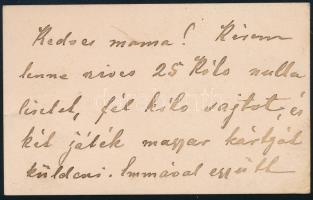 Kedves mama! Kérem
lenne szives 25 Kiló nulla
lisztet, fél kiló sajtot, és
két játék magyar kártyát
küldeni. Immával együtt